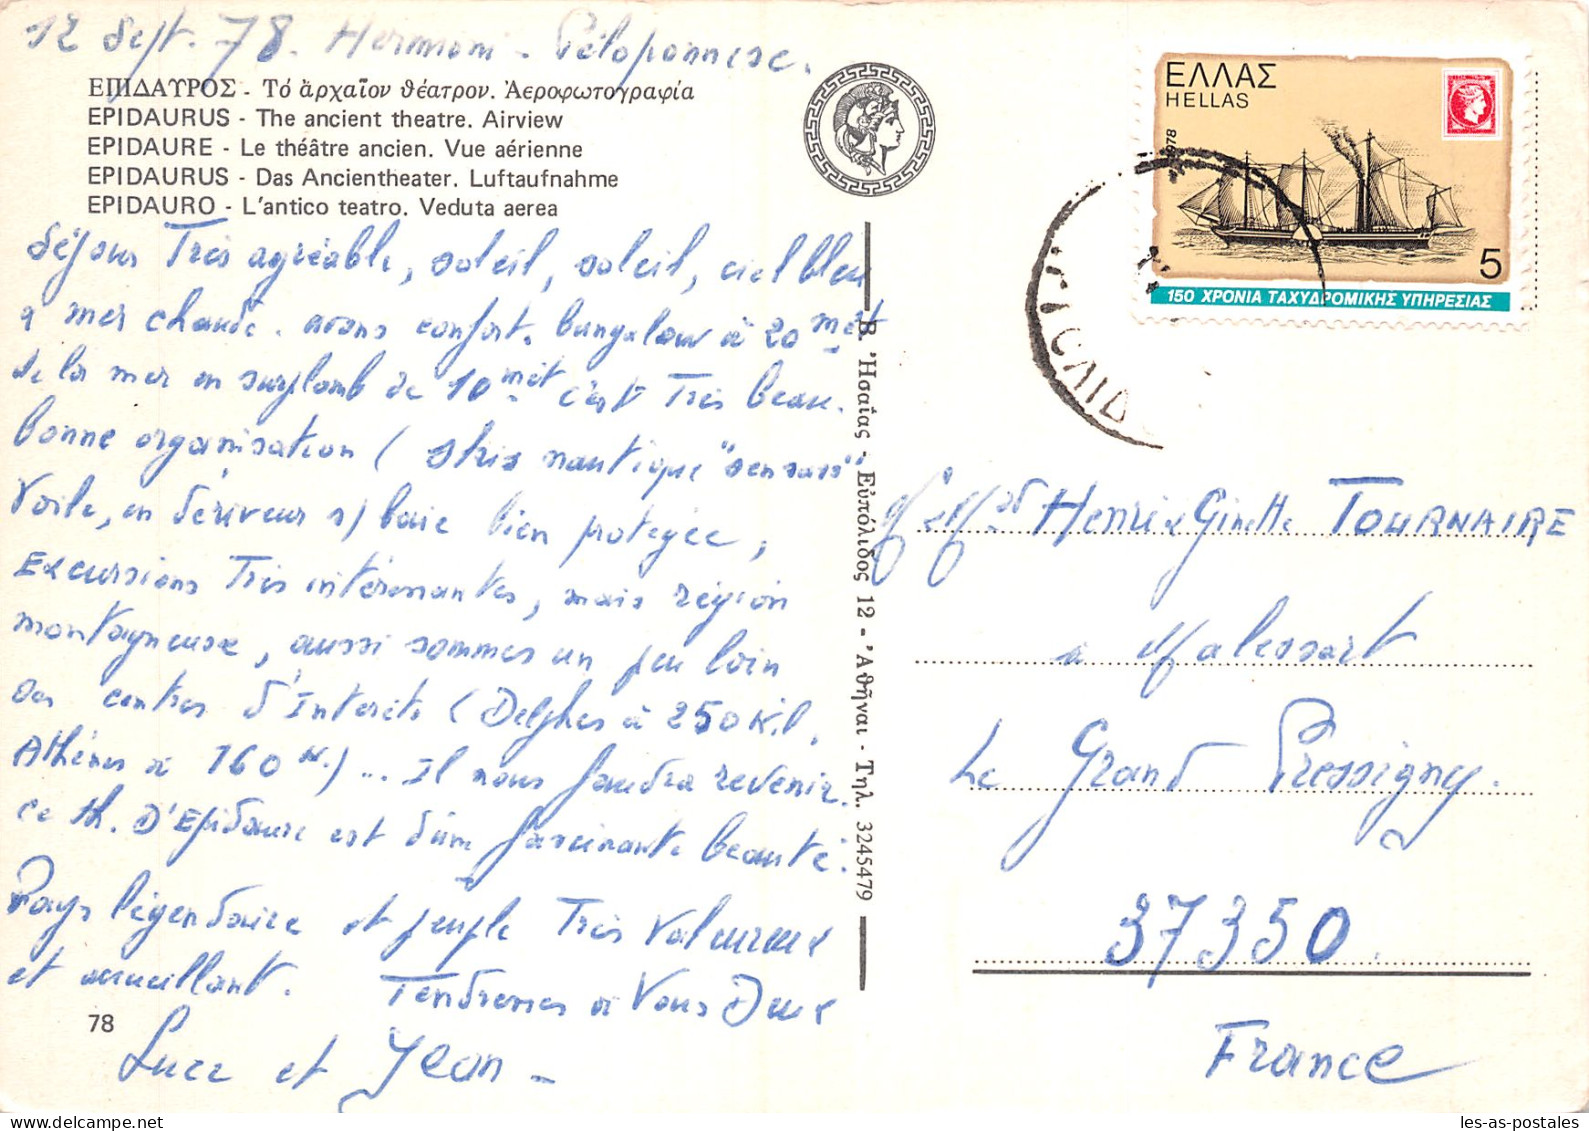 12 Sept. 78. Hermioni - Péloponnèse.
ΕΠΙΔΑΥΡΟΣ - Τό ἀρχαῖον θέατρον. Ἀεροφωτογραφία
EPIDAURUS - The ancient theatre. Airview
EPIDAURE - Le théâtre ancien. Vue aérienne
EPIDAURUS - Das Ancientheater. Luftaufnahme
EPIDAURO - L'antico teatro. Veduta aerea
séjour Très agréable, soleil, soleil, ciel bleu
mer chaude. avons confort. bungalow à 20 mèt
de la mer en surplomb de 10 mèt c'est Très beau.
bonne organisation ( skis nautique "sensass"
Voile, en dériveur s) baie bien protégée,
Excursions Très intéressantes, mais région
montagneuse, aussi sommes un peu loin
des centres d'Intérêts (Delphes à 250 Kil,
Athènes à 160 K.) ... Il nous faudra revenir.
ce th. D'Epidaure est d'une fascinante beauté.
Pays légendaire et peuple Très valeureux
et accueillant. Tendresses à Vous Deux
Luce et Jean -
78
Β. Ἠσαΐας - Εὐπόλιδος 12 - Ἀθῆναι - Τηλ. 3245479
ΕΛΛΑΣ
HELLAS
1978
5
150 ΧΡΟΝΙΑ ΤΑΧΥΔΡΟΜΙΚΗΣ ΥΠΗΡΕΣΙΑΣ
Henri & Ginette TOURNAIRE
à Malessart
Le Grand Pressigny.
37350.
France
les-as-postales